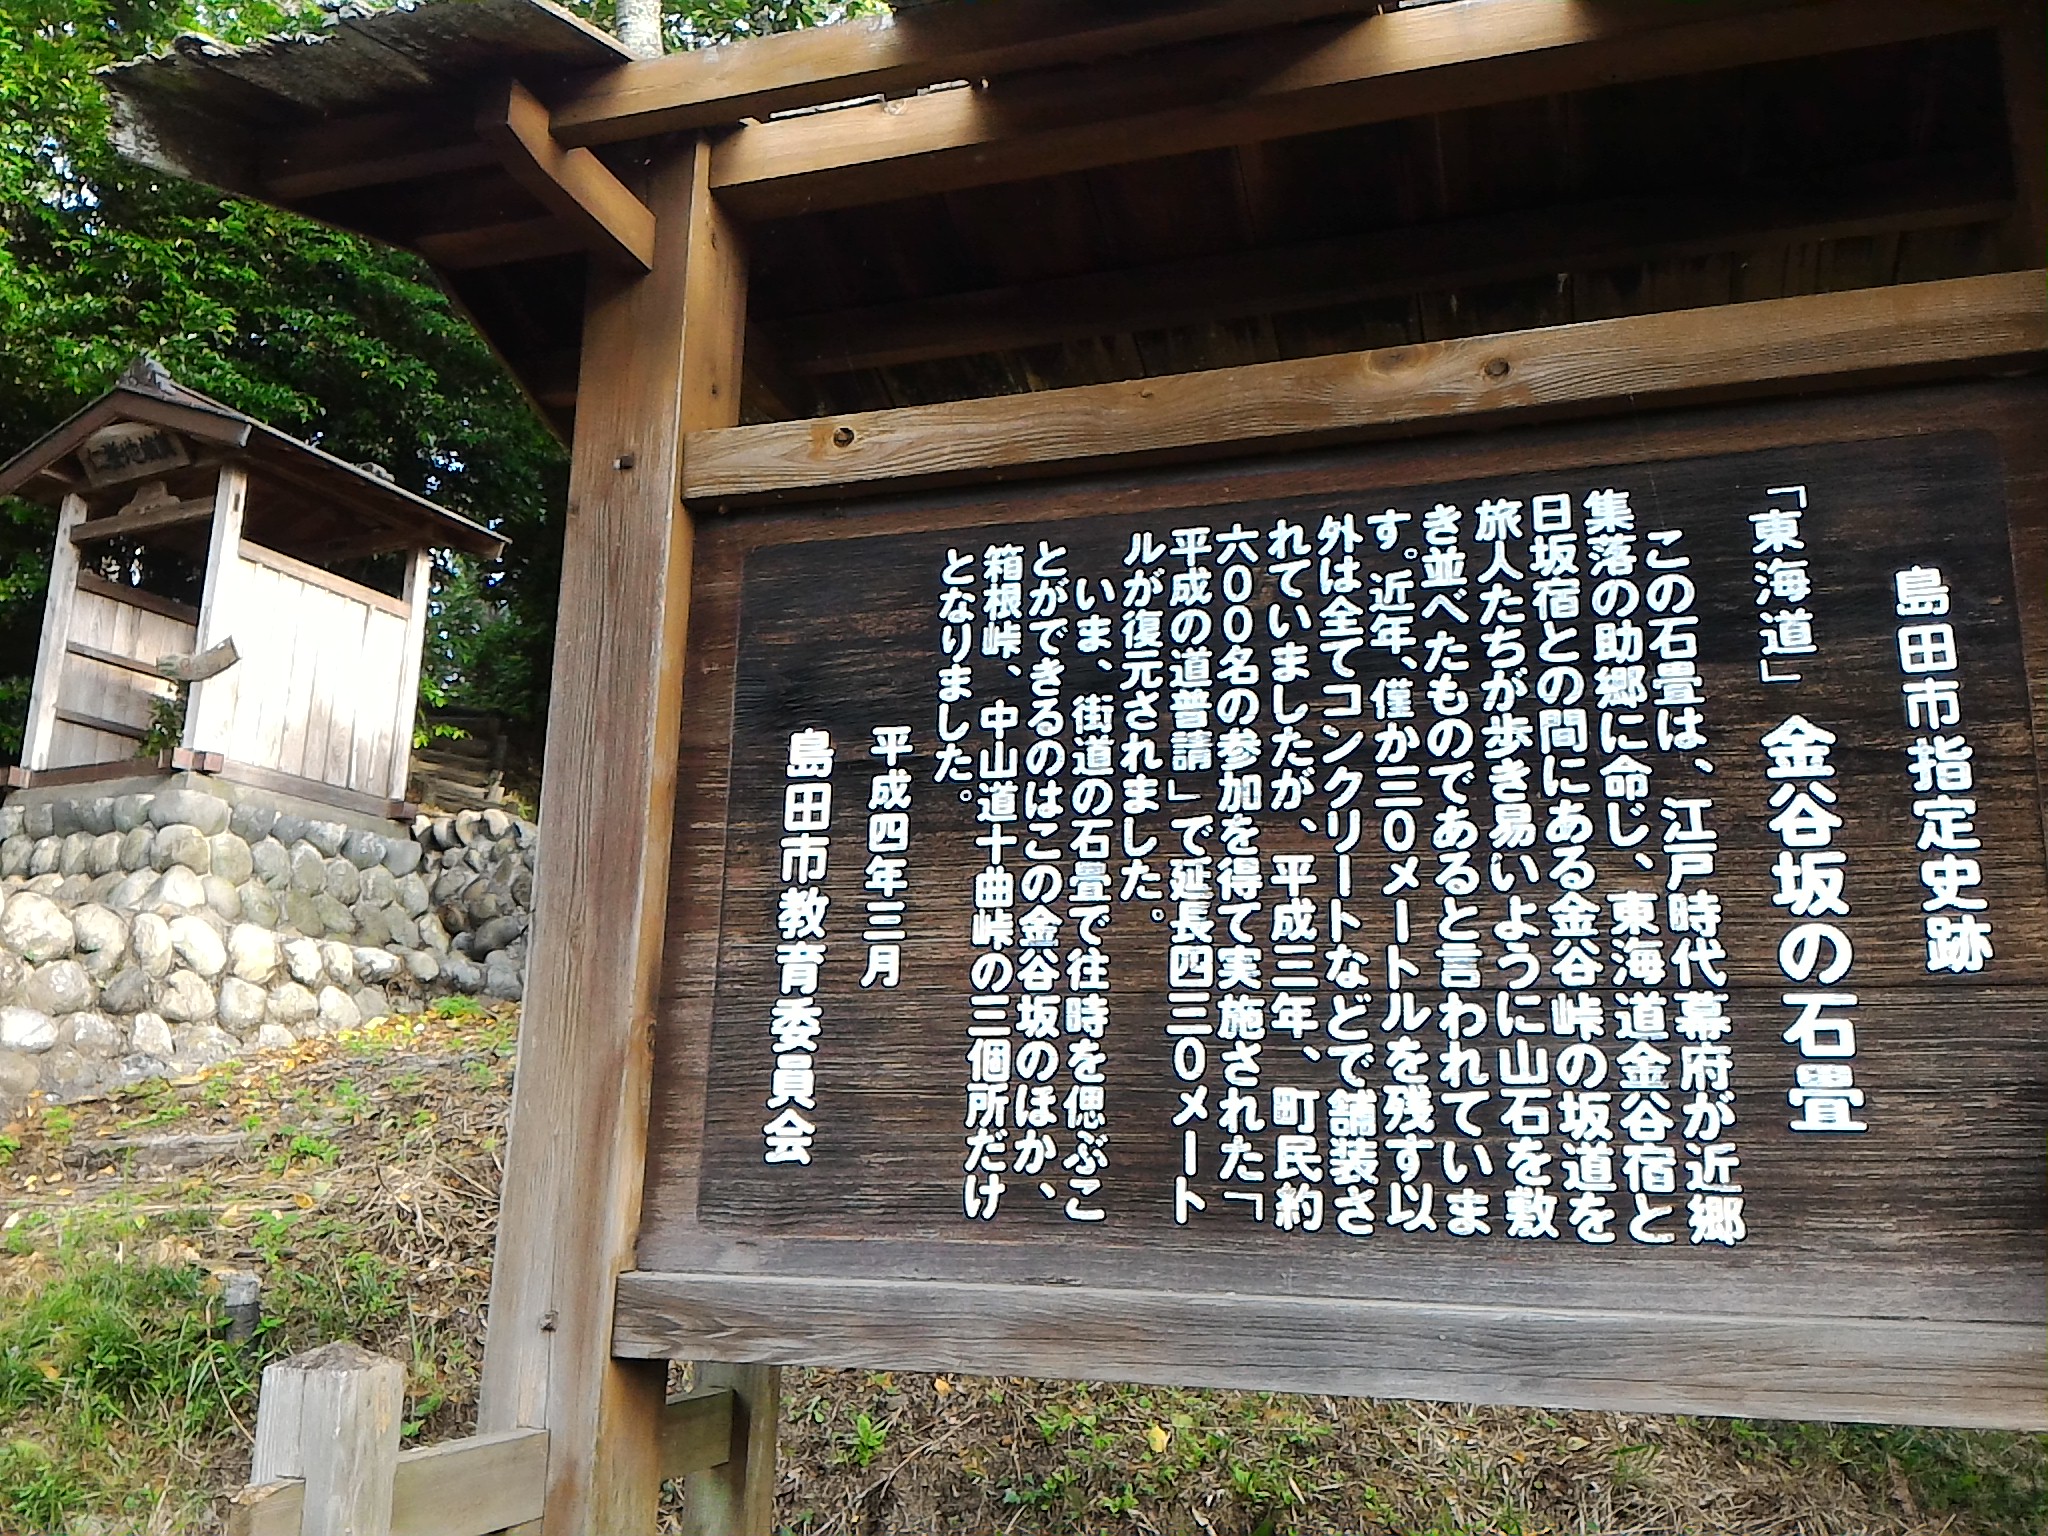 島田市指定史跡
「東海道」 金谷坂の石畳
この石畳は、江戸時代幕府が近郷
集落の助郷に命じ、東海道金谷宿と
日坂宿との間にある金谷峠の坂道を
旅人たちが歩き易いように山石を敷
き並べたものであると言われていま
す。近年、僅か三〇メートルを残す以
外は全てコンクリートなどで舗装さ
れていましたが、平成三年、町民約
六〇〇名の参加を得て実施された「
平成の道普請」で延長四三〇メート
ルが復元されました。
いま、街道の石畳で往時を偲ぶこ
とができるのはこの金谷坂のほか、
箱根峠、中山道十曲峠の三個所だけ
となりました。
平成四年三月
島田市教育委員会